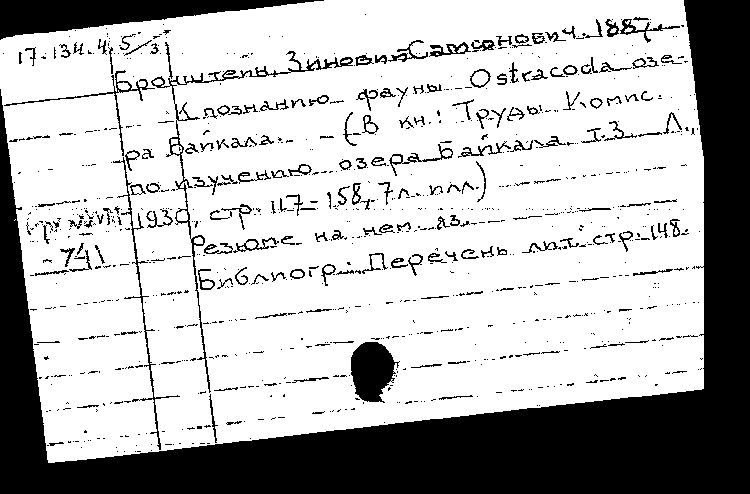 17.134.4.5/3
Бронштейн, Зиновий Самсонович. 1887.
К познанию фауны Ostracoda озе-
ра Байкала. – (В кн.: Труды Комис.
по изучению озера Байкала. т.3. Л.,
1930, стр. 117–158, 7 л. илл.)
Резюме на нем. яз.
Библиогр.: Перечень лит. стр. 148.
-741